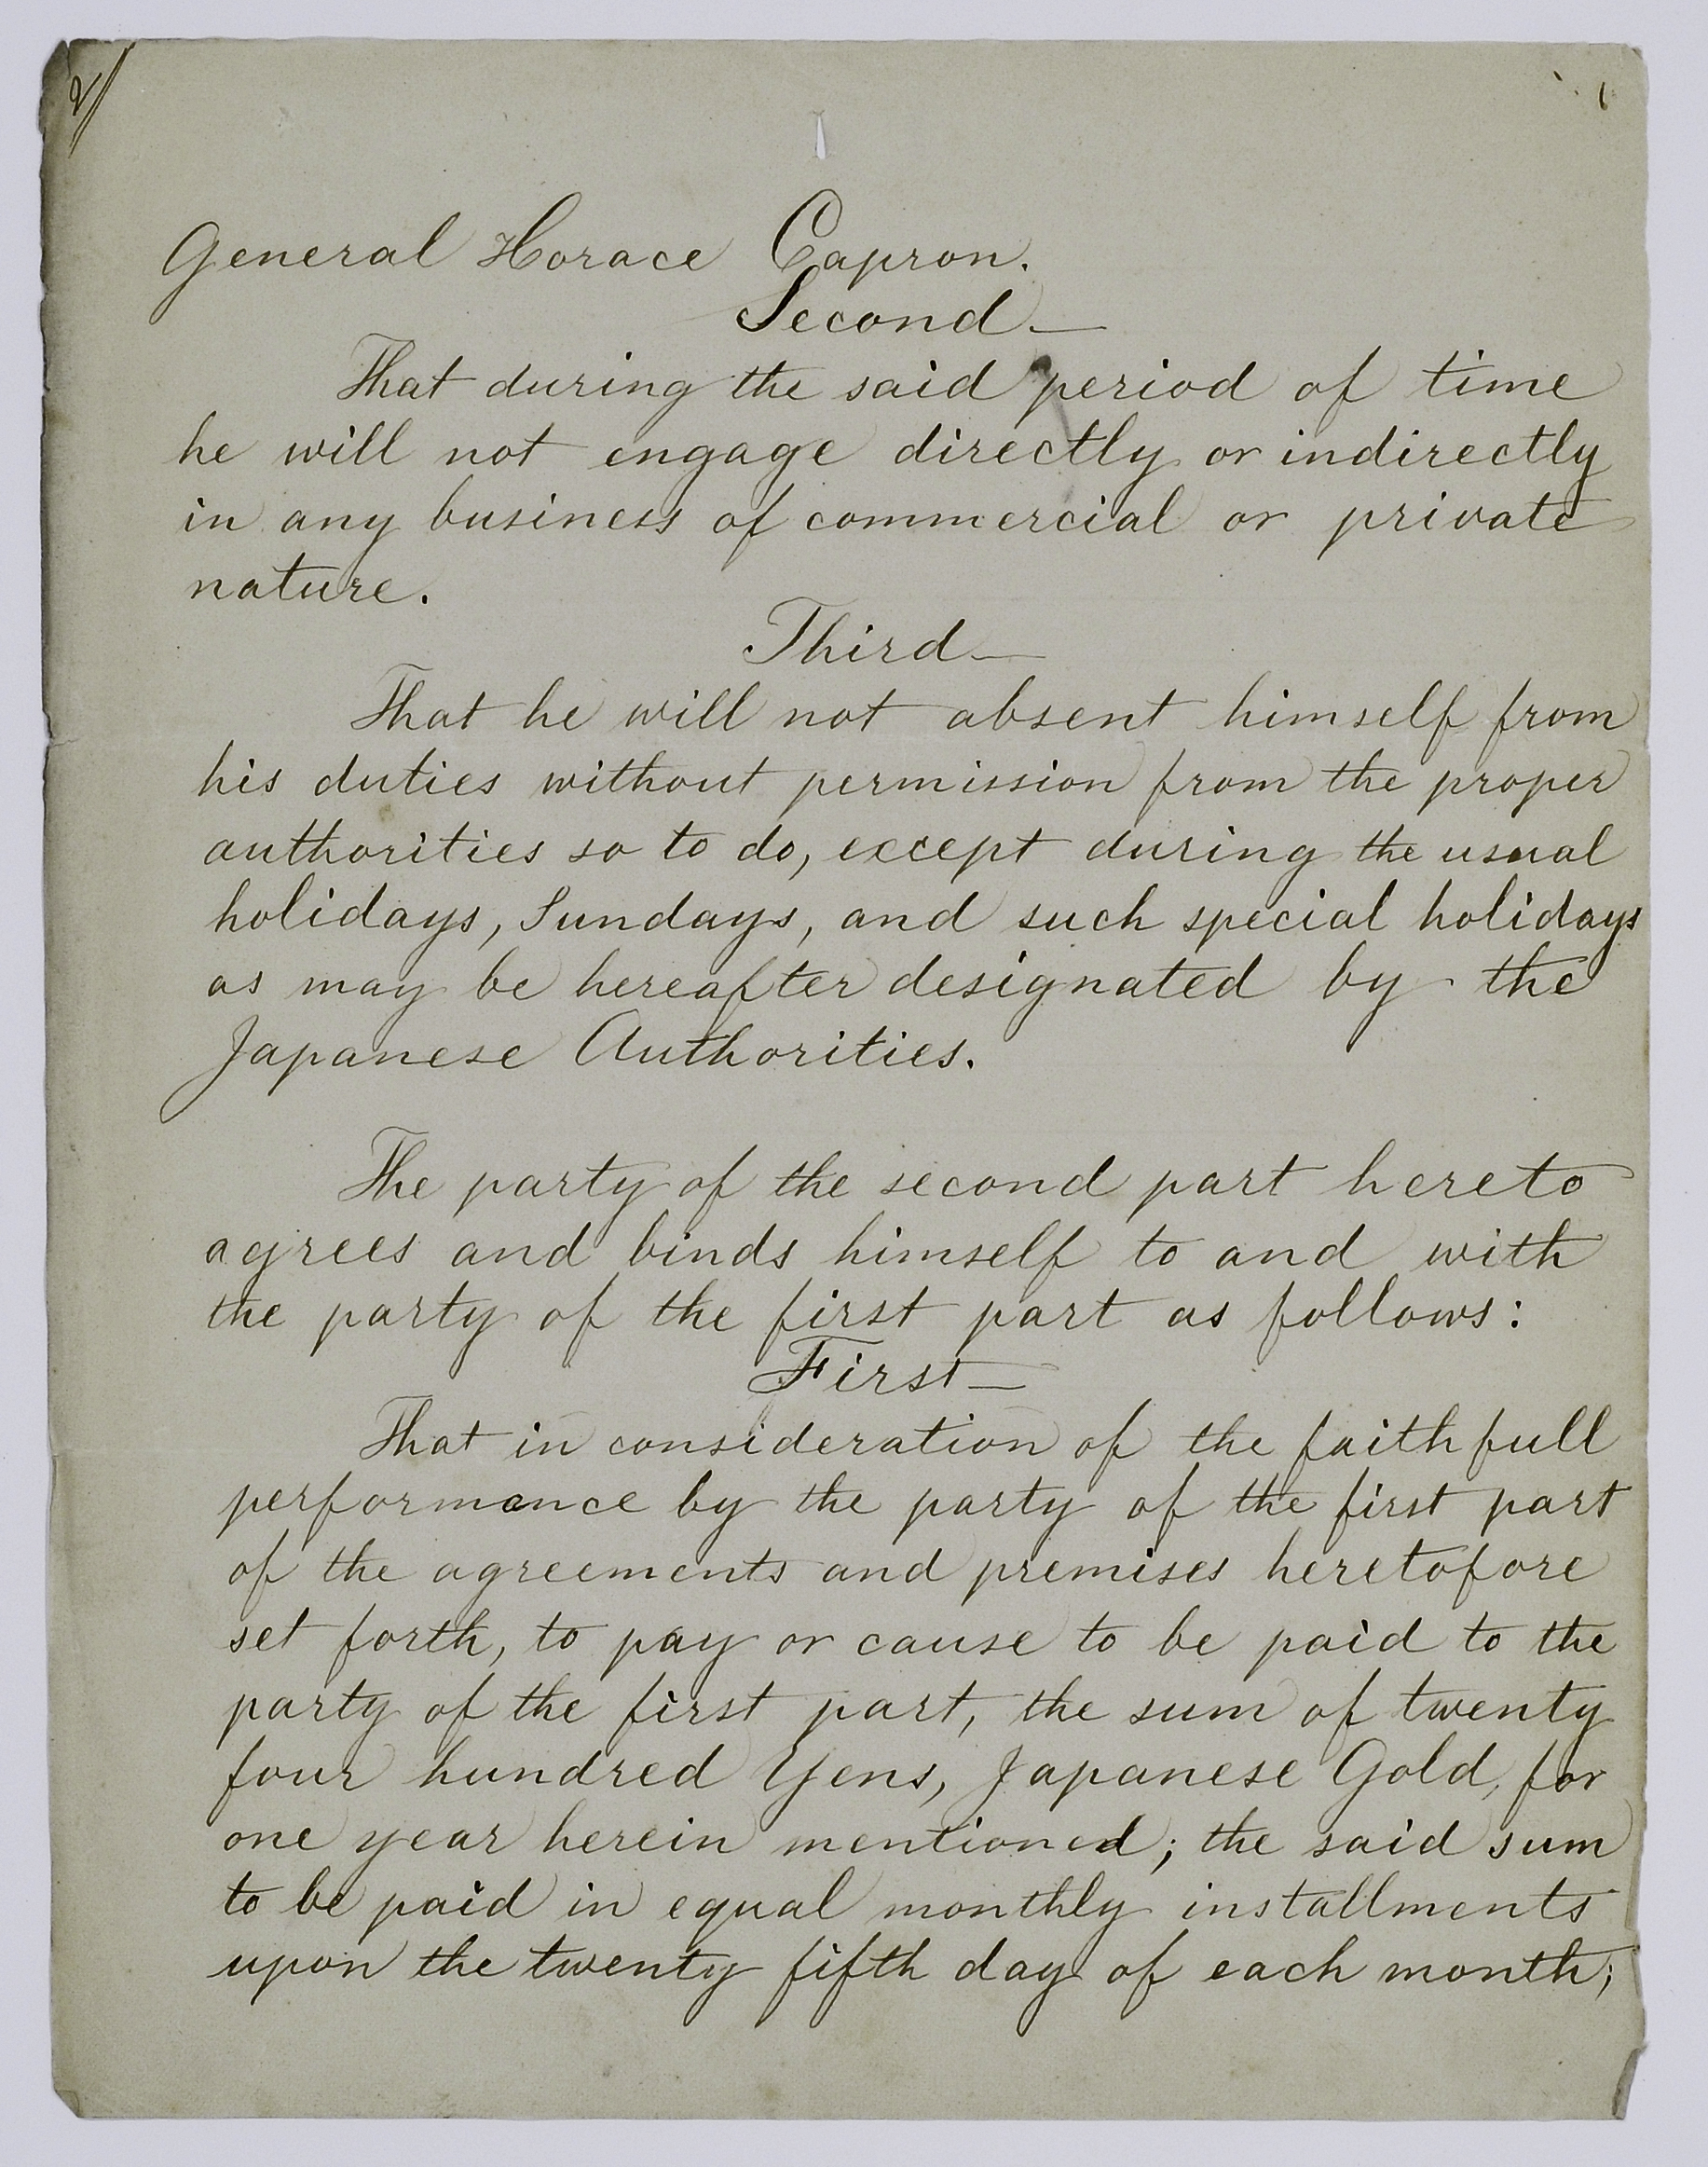 2/
General Horace Capron.
Second—
That during the said period of time
he will not engage directly or indirectly
in any business of commercial or private
nature.
Third—
That he will not absent himself from
his duties without permission from the proper
authorities so to do, except during the usual
holidays, Sundays, and such special holidays
as may be hereafter designated by the
Japanese Authorities.
The party of the second part hereto
agrees and binds himself to and with
the party of the first part as follows:
First—
That in consideration of the faithfull
performance by the party of the first part
of the agreements and premises heretofore
set forth, to pay or cause to be paid to the
party of the first part, the sum of twenty
four hundred Yens, Japanese Gold, for
one year herein mentioned; the said sum
to be paid in equal monthly installments
upon the twenty fifth day of each month;